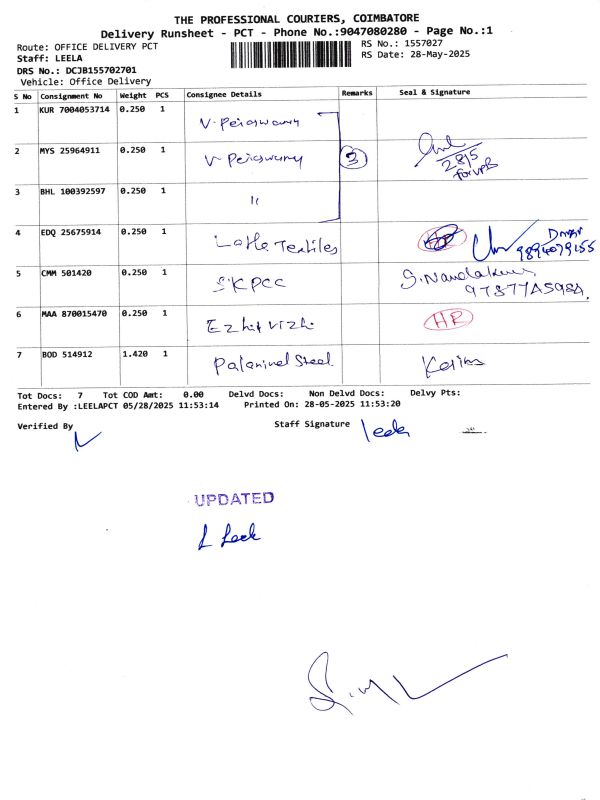 THE PROFESSIONAL COURIERS, COIMBATORE
Delivery Runsheet - PCT - Phone No.:9047080280 - Page No.:1
Route: OFFICE DELIVERY PCT
RS No.: 1557027
Staff: LEELA
RS Date: 28-May-2025
DRS No.: DCJB155702701
Vehicle: Office Delivery
S No Consignment No Weight PCS Consignee Details Remarks Seal & Signature
1 KUR 7004053714 0.250 1 V. Periswamy
2 MYS 25964911 0.250 1 V Periswamy 3 28/5 For VPB
3 BHL 100392597 0.250 1 "
4 EDQ 25675914 0.250 1 Textiles 9894079155
5 CMM 501420 0.250 1 S.KPCC S. Nandakumar
6 MAA 870015470 0.250 1 Ezhil Vizhi HR
7 BOD 514912 1.420 1 Palanivel Steel
Tot Docs: 7 Tot COD Amt: 0.00 Delvd Docs: Non Delvd Docs: Delvy Pts:
Entered By :LEELAPCT 05/28/2025 11:53:14 Printed On: 28-05-2025 11:53:20
Verified By
Staff Signature leela
UPDATED